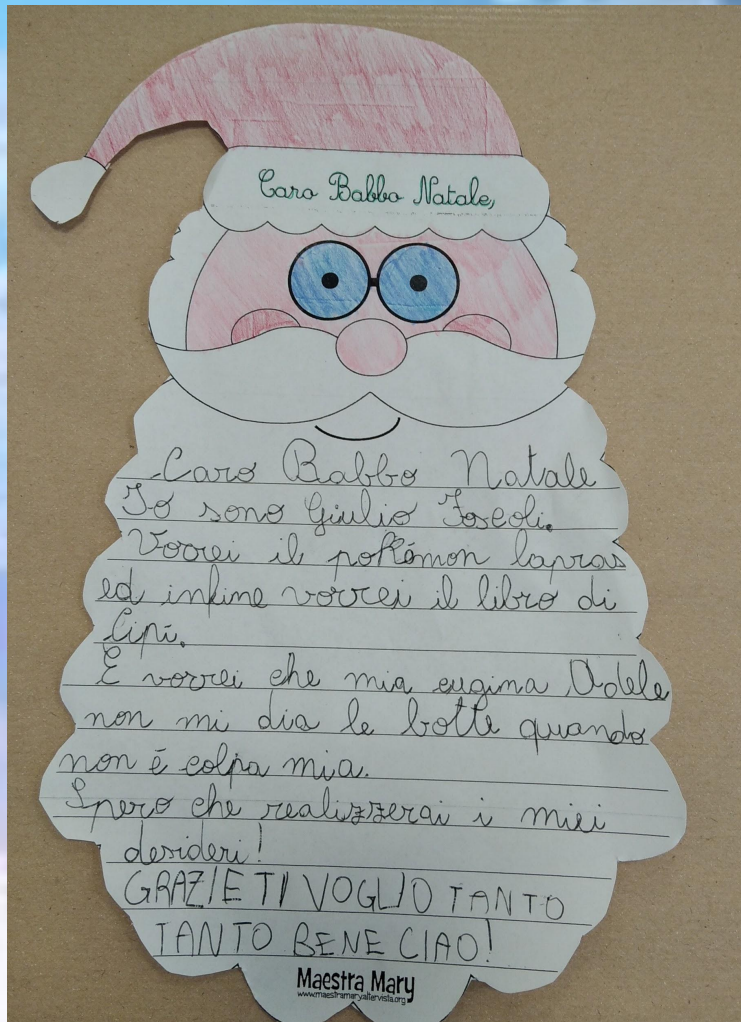 Caro Babbo Natale,
Caro Babbo Natale
Io sono Giulio Foscoli.
Vorrei il pokémon lapras
ed infine vorrei il libro di
Cipí.
E vorrei che mia cugina Adele
non mi dia le botte quando
non é colpa mia.
Spero che realizzerai i miei
desideri!
GRAZIE TI VOGLIO TANTO
TANTO BENE CIAO!
Maestra Mary
www.maestramary.altervista.org